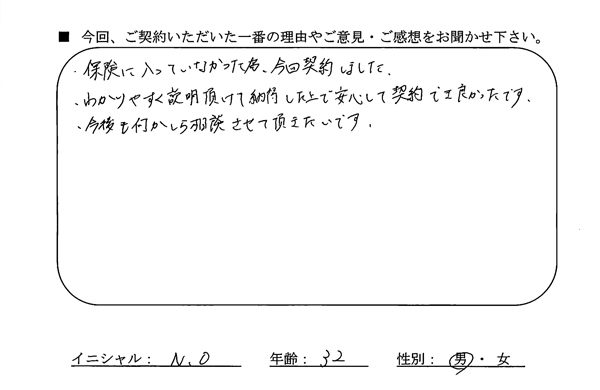 ■ 今回、ご契約いただいた一番の理由やご意見・ご感想をお聞かせ下さい。
・保険に入っていなかった為、今回契約しました。
・わかりやすく説明頂けて納得した上で安心して契約でき良かったです。
・今後も何かしら相談させて頂きたいです。
イニシャル： N.O 年齢： 32 性別： 男・女